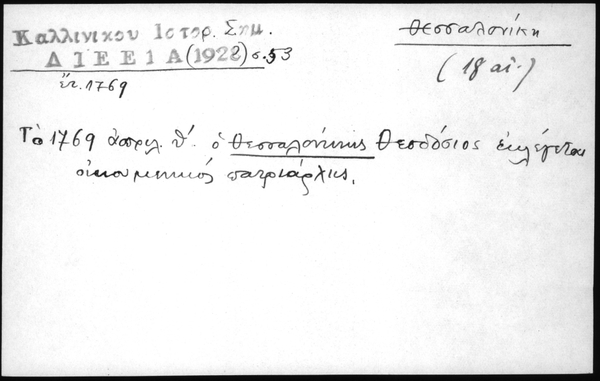 Καλλινίκου Ιστορ. Σημ.
ΔΙΕΕ 1 Α (1928) σ. 53
ἔτ. 1769
Θεσσαλονίκη
(18 αἰ.)
Τὸ 1769 ἀπριλ. θ΄. ὁ Θεσσαλονίκης Θεοδόσιος ἐκλέγεται
οἰκουμενικός πατριάρχης.